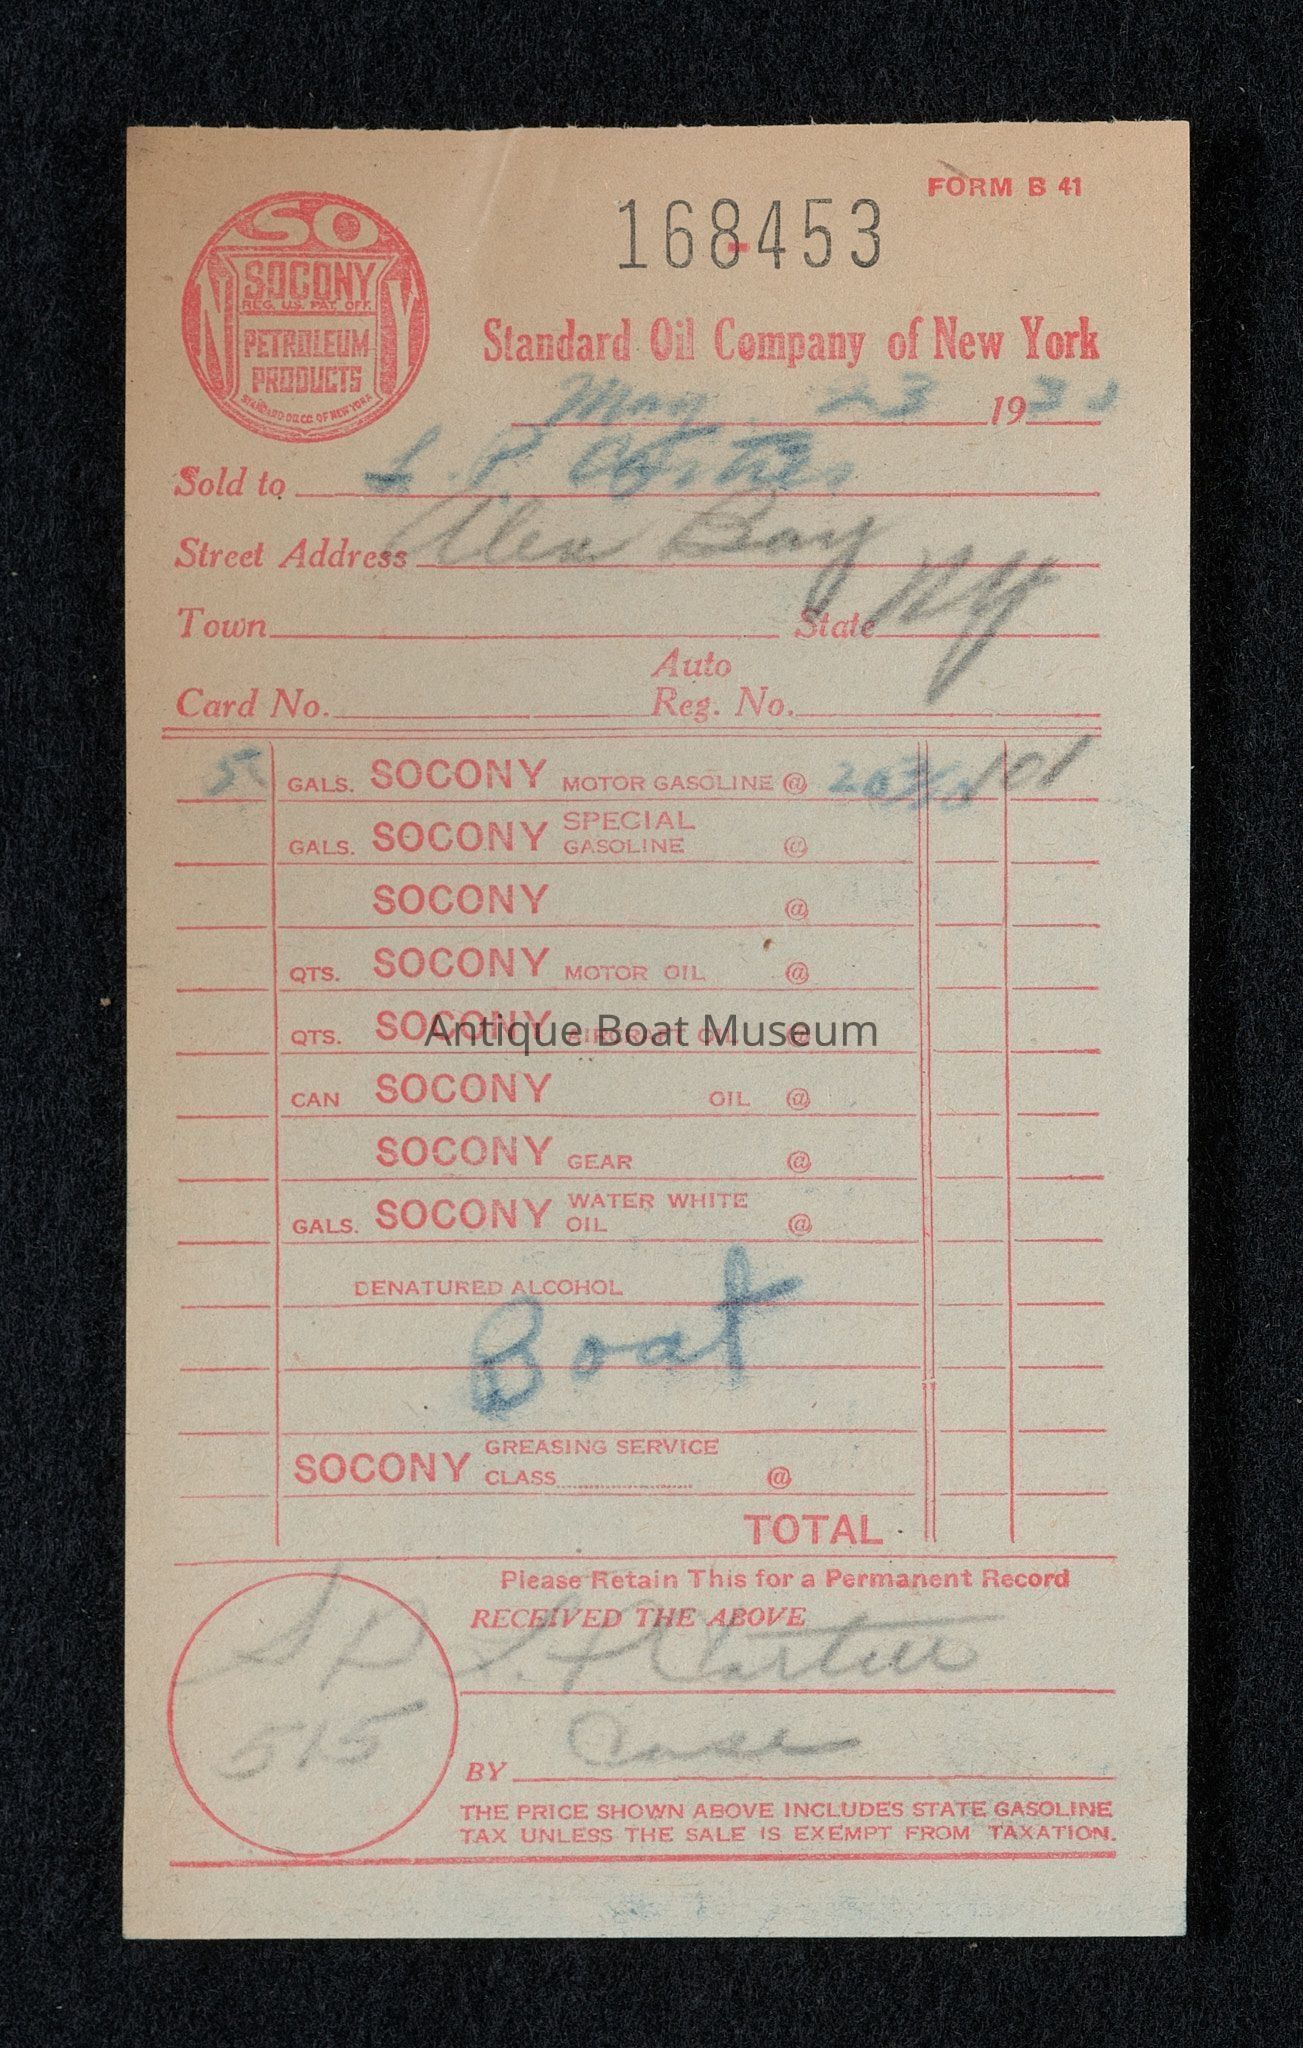 FORM B 41
168453
SO
NY
SOCONY
REG. U.S. PAT. OFF.
PETROLEUM
PRODUCTS
STANDARD OIL CO. OF NEW YORK
Standard Oil Company of New York
May 23 193
Sold to L. P.
Street Address Alex Bay
Town State NY
Auto
Card No. Reg. No.
5 GALS. SOCONY MOTOR GASOLINE @ 1 01
GALS. SOCONY SPECIAL GASOLINE @
SOCONY @
QTS. SOCONY MOTOR OIL @
QTS. SOCONY AIRCRAFT OIL @
Antique Boat Museum
CAN SOCONY OIL @
SOCONY GEAR @
GALS. SOCONY WATER WHITE OIL @
DENATURED ALCOHOL
Boat
SOCONY GREASING SERVICE
CLASS @
TOTAL
Please Retain This for a Permanent Record
RECEIVED THE ABOVE
L. P.
515
BY Case
THE PRICE SHOWN ABOVE INCLUDES STATE GASOLINE
TAX UNLESS THE SALE IS EXEMPT FROM TAXATION.